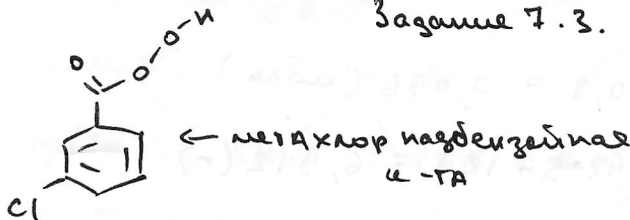 Задание 7.3.
O
O
O-H
Cl
← метахлор надбензойная
к-та